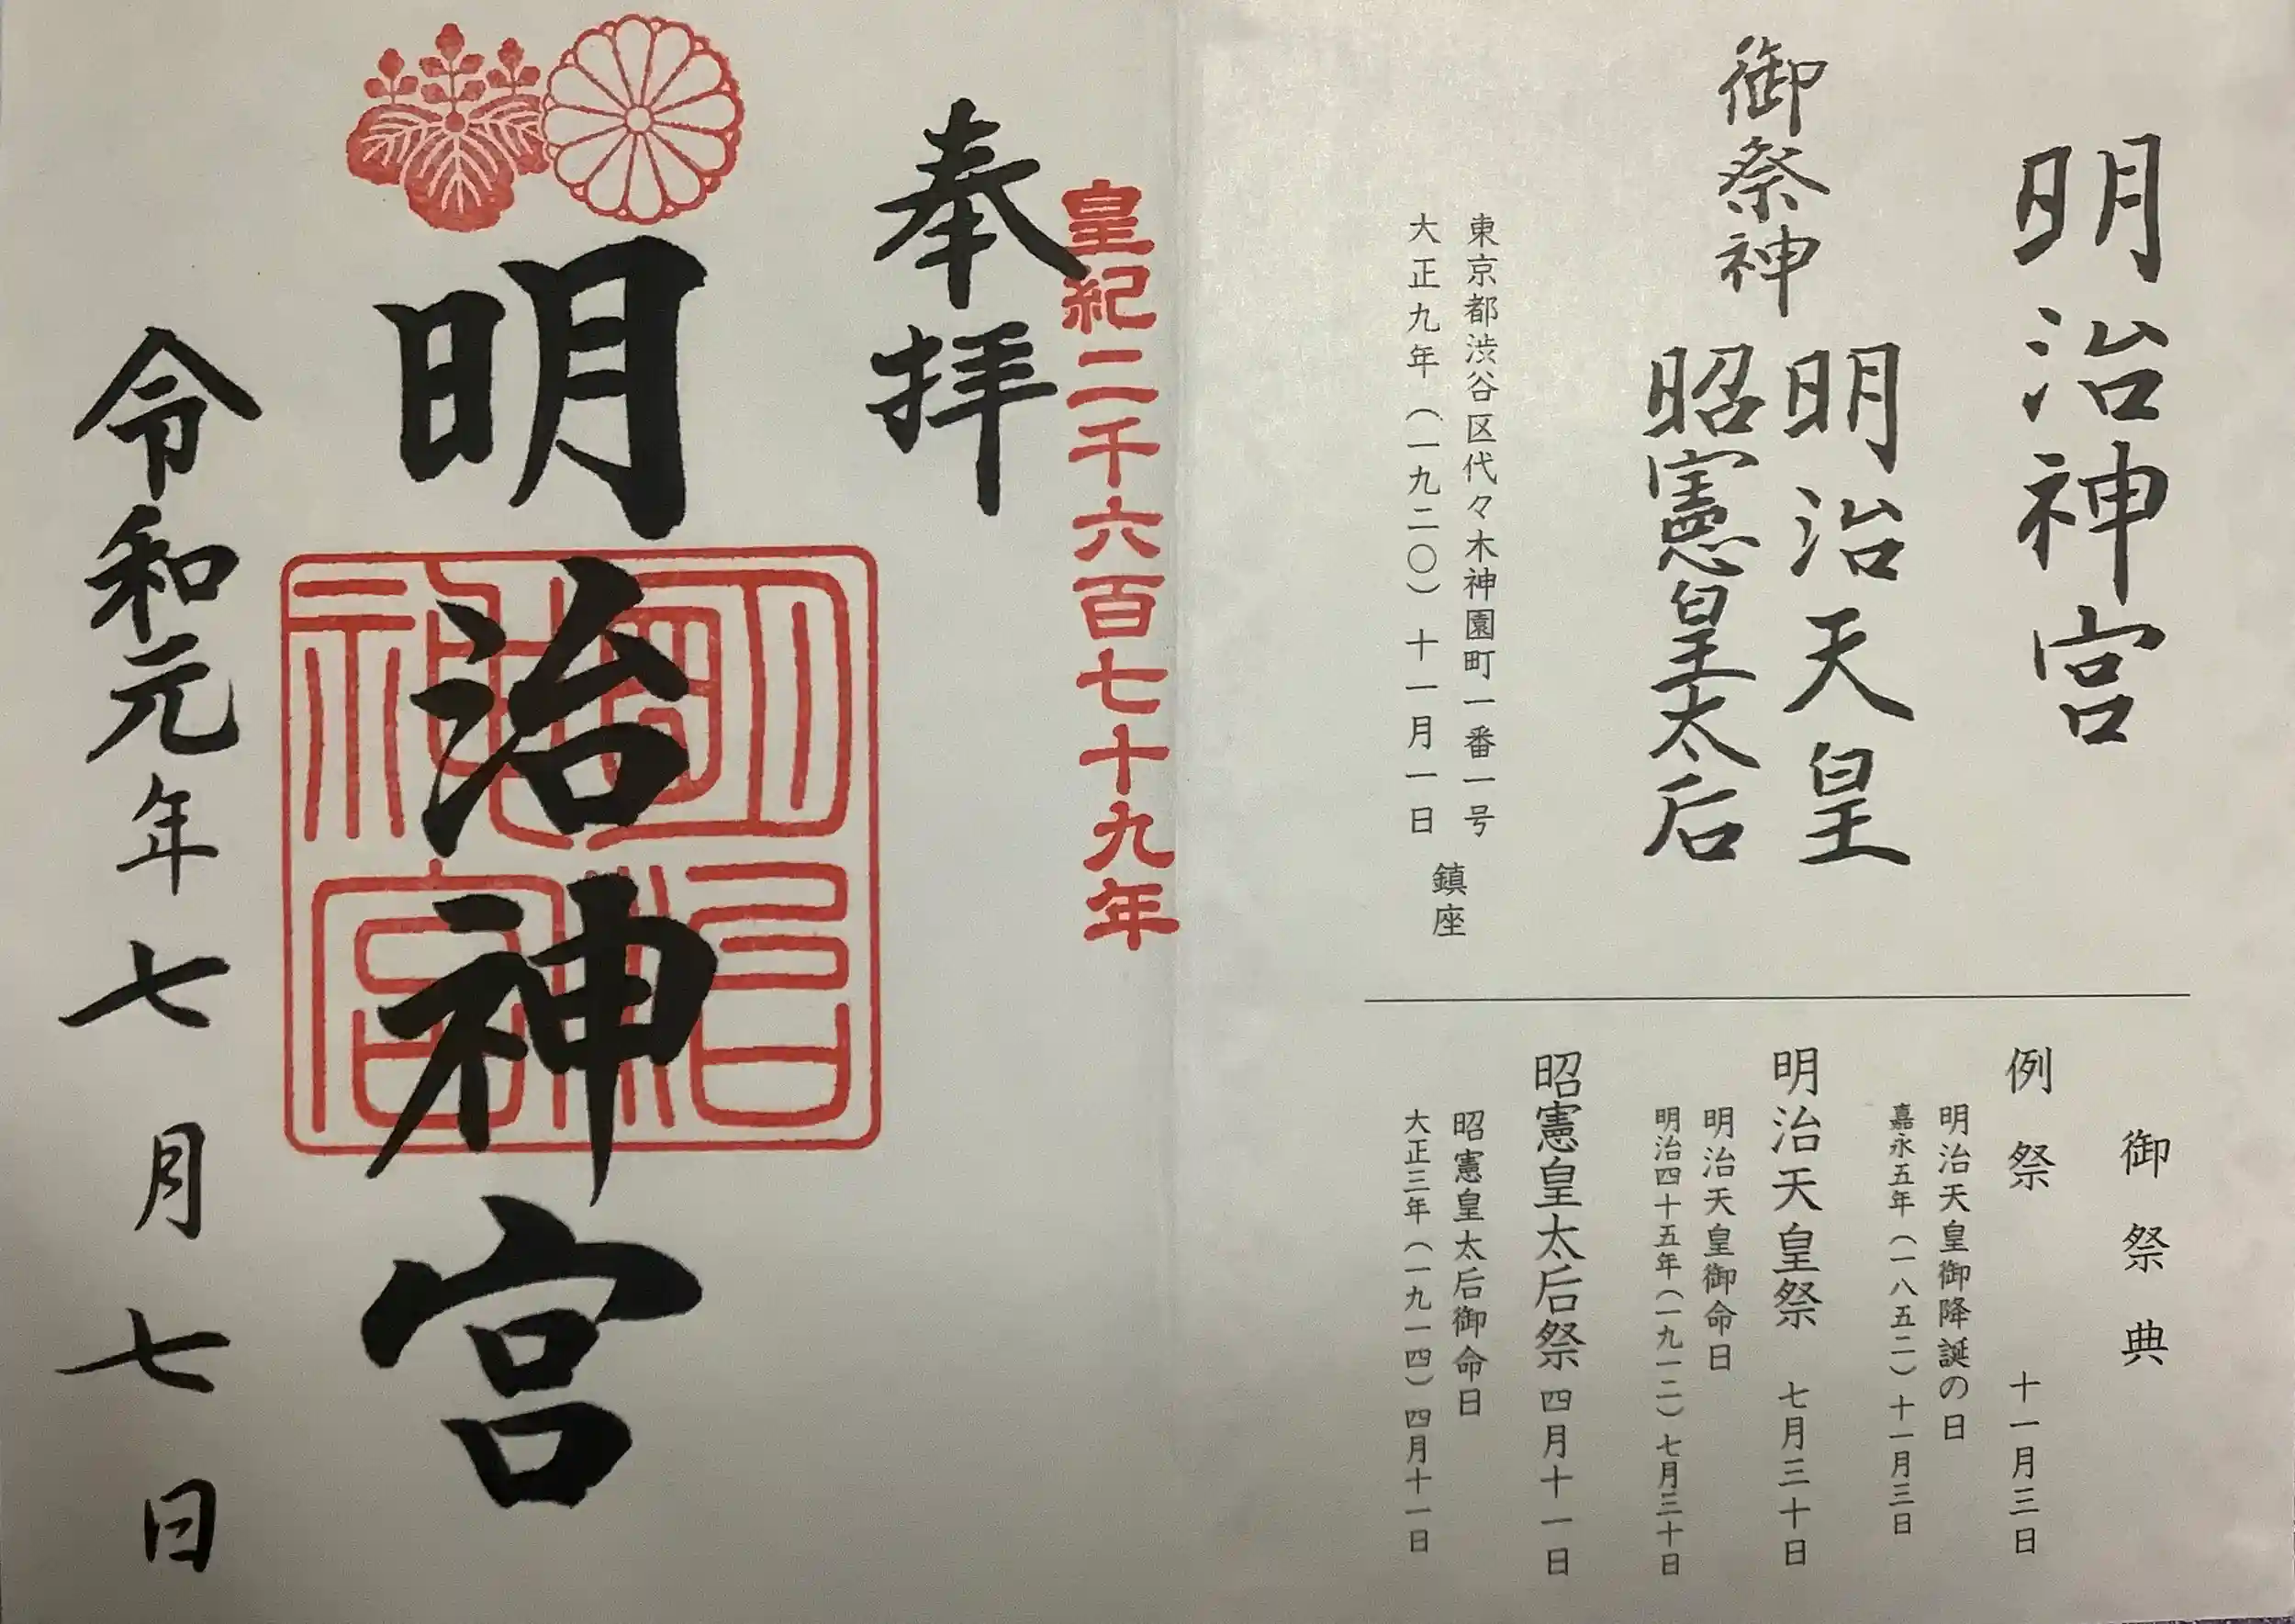 明治神宮
御祭神
明治天皇
昭憲皇太后
東京都渋谷区代々木神園町一番一号
大正九年(一九二〇)十一月一日
鎮座
御祭典
例祭 十一月三日
明治天皇御降誕の日
嘉永五年(一八五二)十一月三日
明治天皇祭 七月三十日
明治天皇御命日
明治四十五年(一九一二)七月三十日
昭憲皇太后祭 四月十一日
昭憲皇太后御命日
大正三年(一九一四)四月十一日
皇紀二千六百七十九年
奉拝
明治神宮
明治神宮
令和元年七月七日